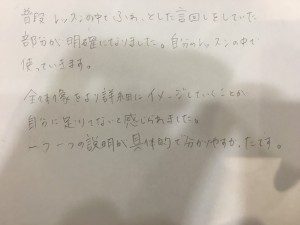 普段レッスンの中でふわっとした言回しをしていた
部分が明確になりました。自分のレッスンの中で
使っていきます。
対象をより詳細にイメージしていくことが
自分に足りてないと感じられました。
一つ一つの説明が具体的で分かりやすかったです。